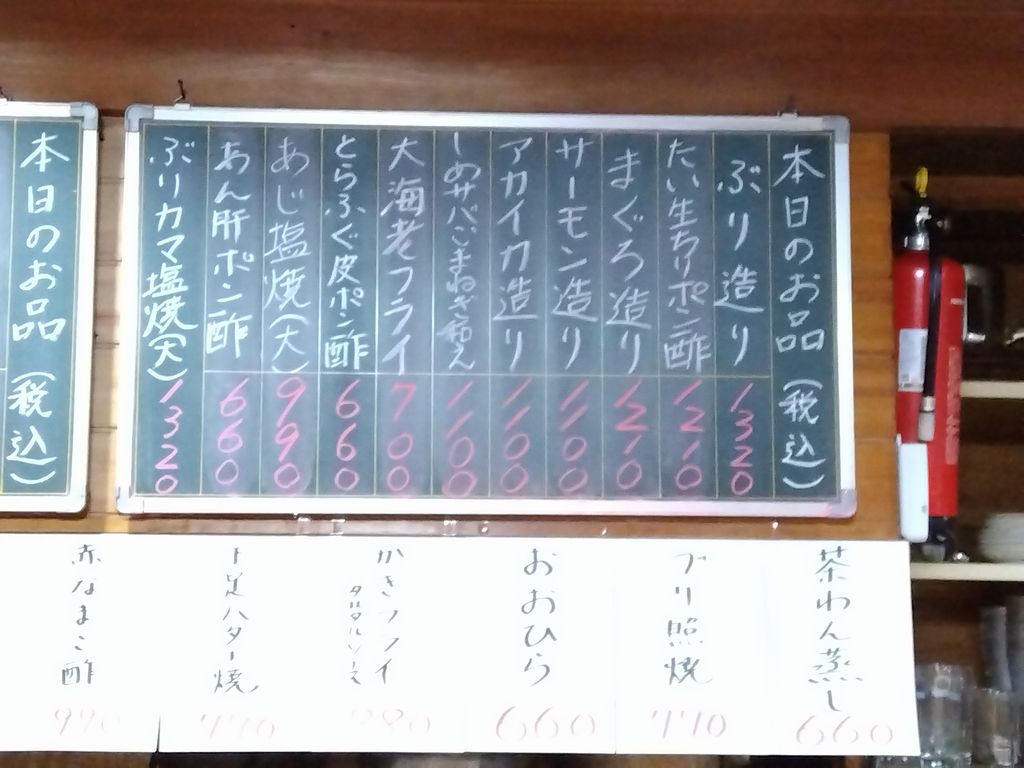 本日のお品(税込)
ぶり造り 1320
たい生ちりポン酢 1210
まぐろ造り 1210
サーモン造り 1100
アカイカ造り 1100
しめサバごまねぎ和え 1100
大海老フライ 700
とらふぐ皮ポン酢 660
あじ塩焼(大) 990
あん肝ポン酢 660
ぶりカマ塩焼(大) 1320
本日のお品(税込)
茶わん蒸し 660
ブリ照焼 770
おおひら 660
かきフライ
タルタルソース
ト足バター焼 770
赤なまこ酢 990